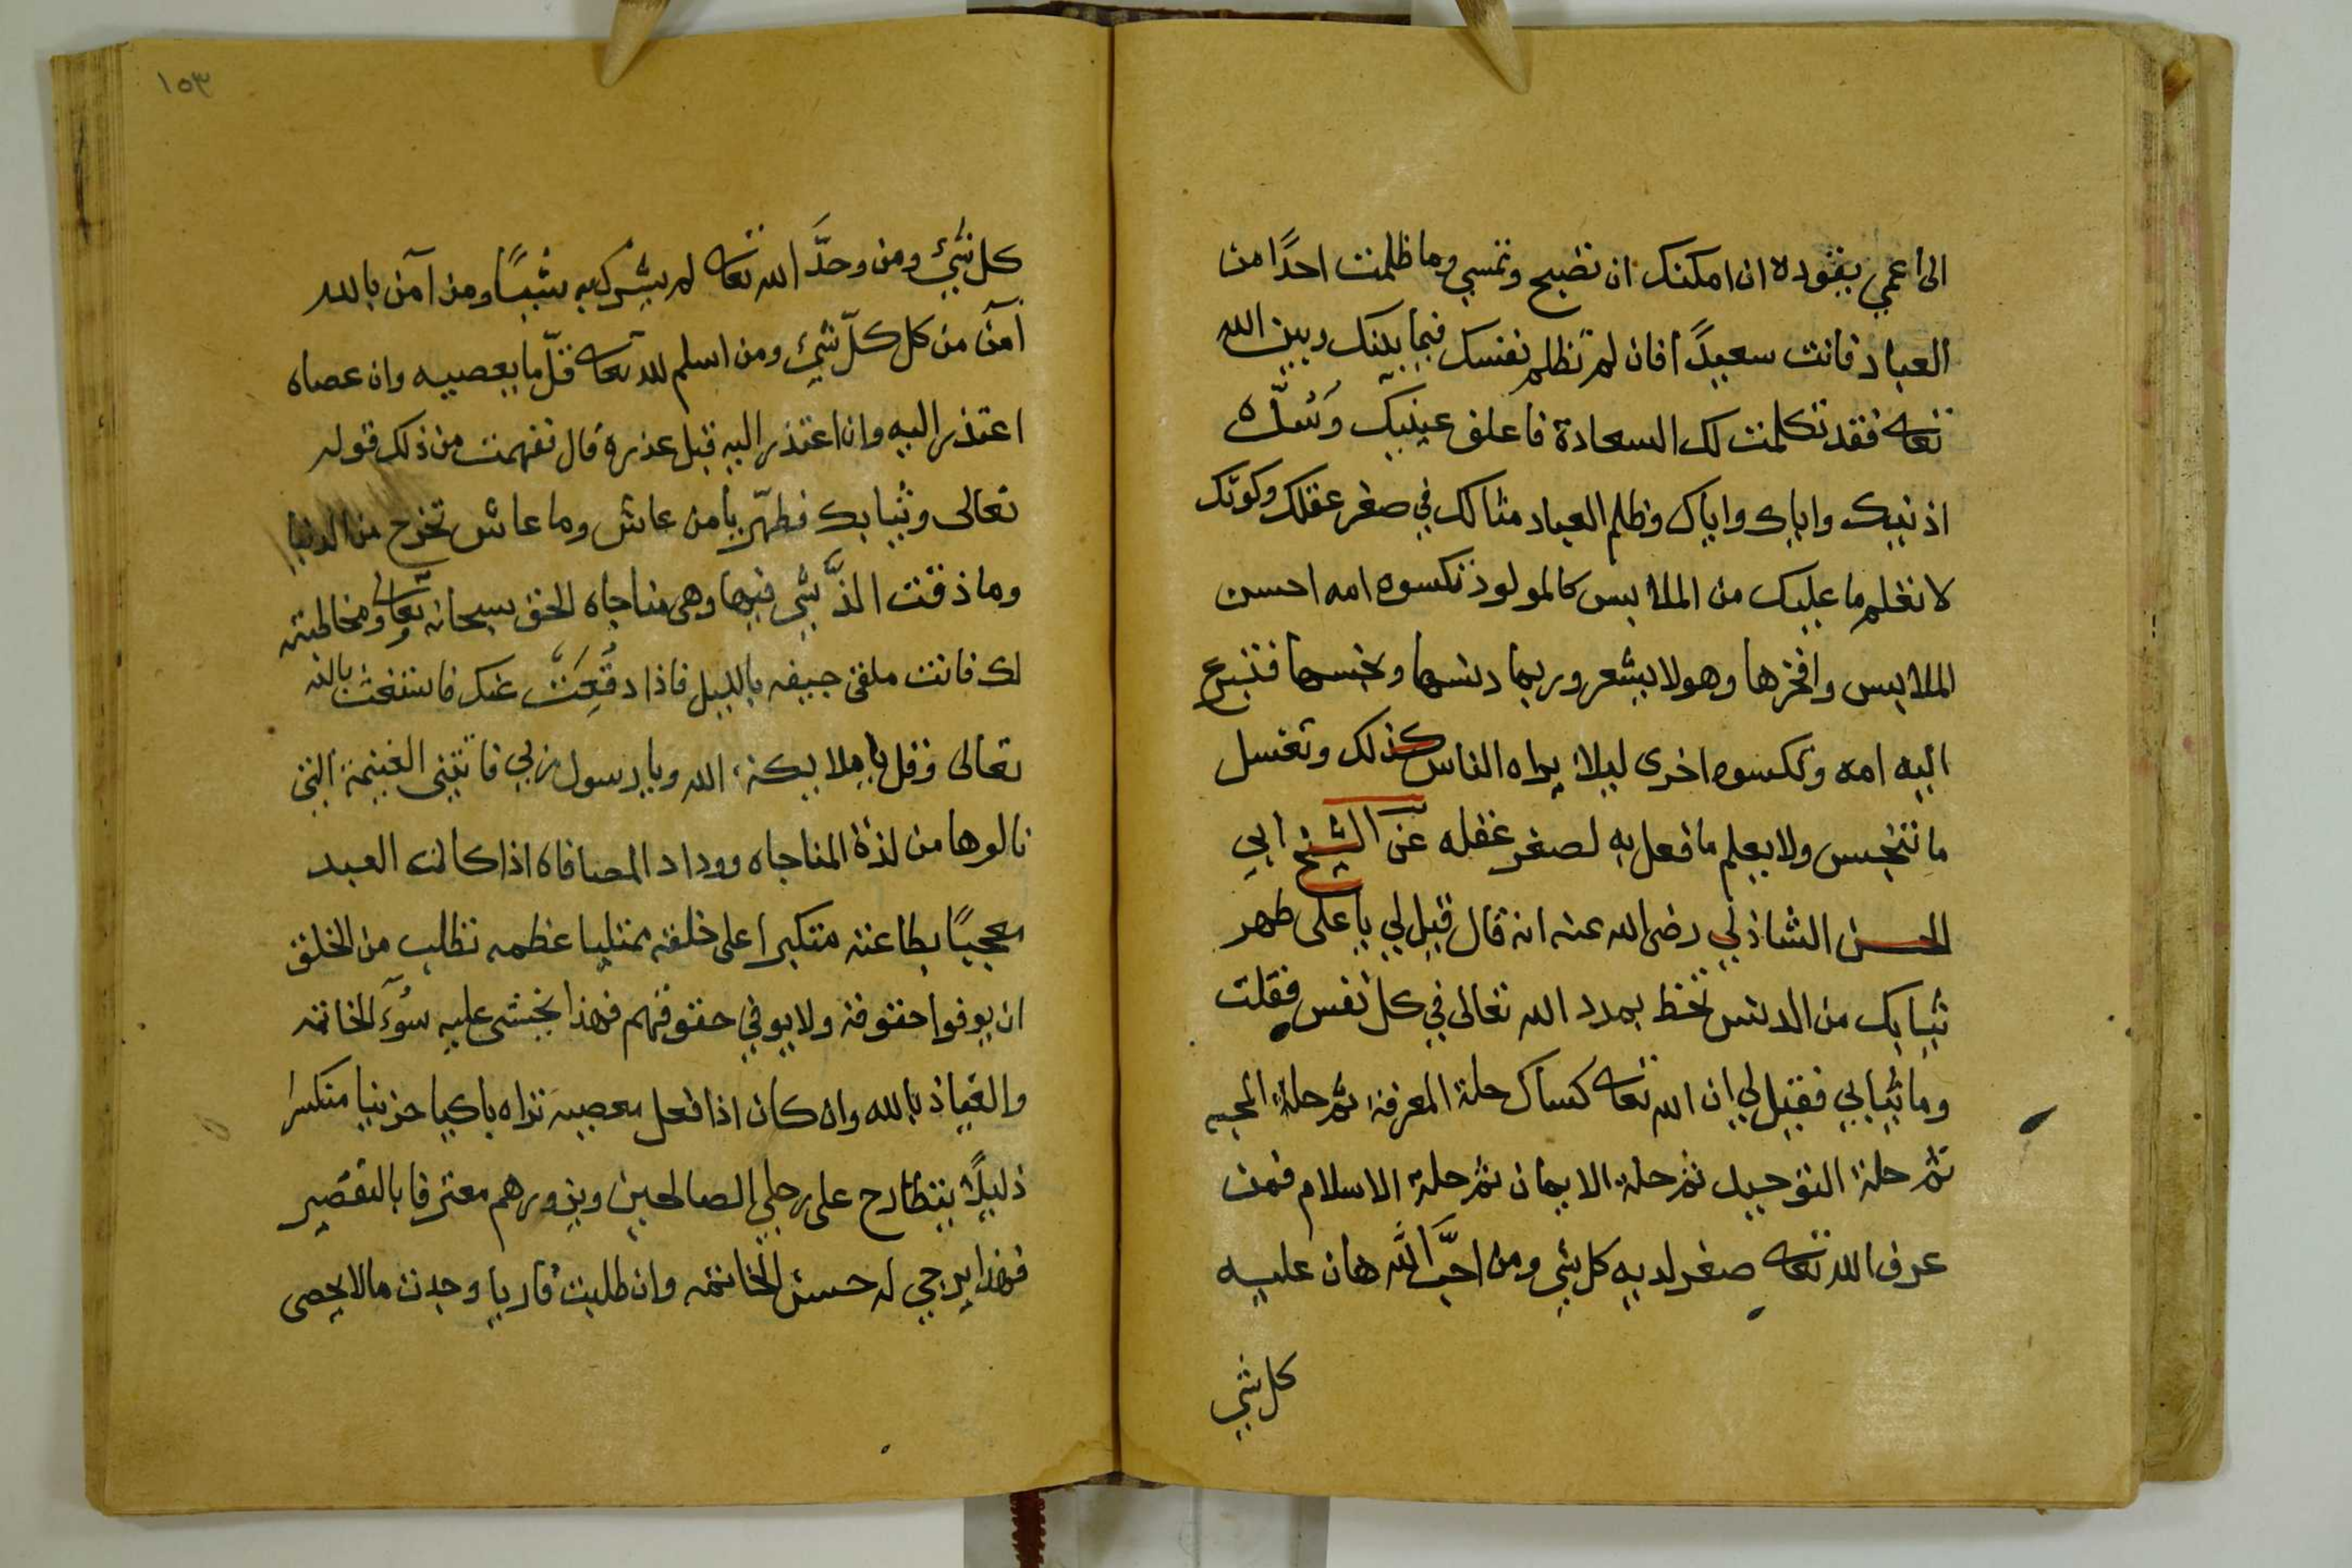 الى اعمي يقوده ان امكنك ان تصبح وتمسي وما ظلمت احدًا من
العباد فانت سعيدًا فان لم تظلم نفسك فيما بينك وبين الله
تعالى فقد تكلمت لك السعادة فاغلق عينيك وسُدَّه
اذنيك واياك واياك وظلم العباد مثالك في صغر عقلك وكونك
لا تعلم ما عليك من الملابس كالمولود تكسوه امه احسن
الملابس وافخرها وهو لا يشعر وربما دنسها ونجسها فتسرع
اليه امه وتكسوه اخرى ليلا يراه الناس كذلك وتغسل
ما تنجس ولا يعلم ما فعل به لصغر عقله عن الشيخ ابي
الحسن الشاذلي رضى الله عنه انه قال قيل لي يا على طهر
ثيابك من الدنس تحظ بمدد الله تعالى في كل نفس فقلت
وما ثيابي فقيل لي ان الله تعالى كساك حلة المعرفة ثم حلة المحبه
ثم حلة التوحيد ثم حلة الايمان ثم حلة الاسلام فمن
عرف الله تعالى صغر لديه كل شي ومن احبَّ الله هان عليه
كل شي
١٥٣
كل شيء ومن وحدَّ الله تعالى لم يشرك به شيئًا ومن آمن بالله
آمن من كل كلّ شيء ومن اسلم لله تعالى قلّ ما يعصيه وان عصاه
اعتذر اليه وان اعتذر اليه قبل عذره قال ففهمت من ذلك قوله
تعالى وثيابك فطهّر يا من عاش وما عاش تخرج من الدنيا
وما ذقت الذَّ شي فيها وهى مناجاه الحق سبحانه وتعالى ومخاطبته
لك فانت ملقى جيفه بالليل فاذا دفعت عنك فاستغث بالله
تعالى وقل يا ملايكة الله ويا رسول ربي فاتتني الغنيمة التي
نالوها من لذة المناجاه ووداد المصافاه اذا كان العبد
معجبًا بطاعته متكبرا على خلقه ممتليا عظمه تطلب من الخلق
ان يوفوا حقوقه ولا يوفي حقوقهم فهذا يخشى عليه سوء الخاتمه
والعياذ بالله وان كان اذا فعل معصيه تراه باكيا حزينا منكسرا
ذليلًا يتطارح على رجلي الصالحين ويزورهم معترفا بالتقصير
فهذا يرجي له حسن الخاتمه وان طلبت قاريا وجدت مالا يحصى